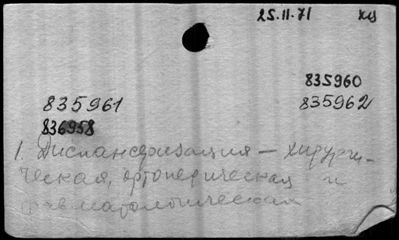 25.11.71 хц
835960
835961 835962
836958
1. Диспансеризация — хирурги-
ческая, ортопедическая и
травматологическая